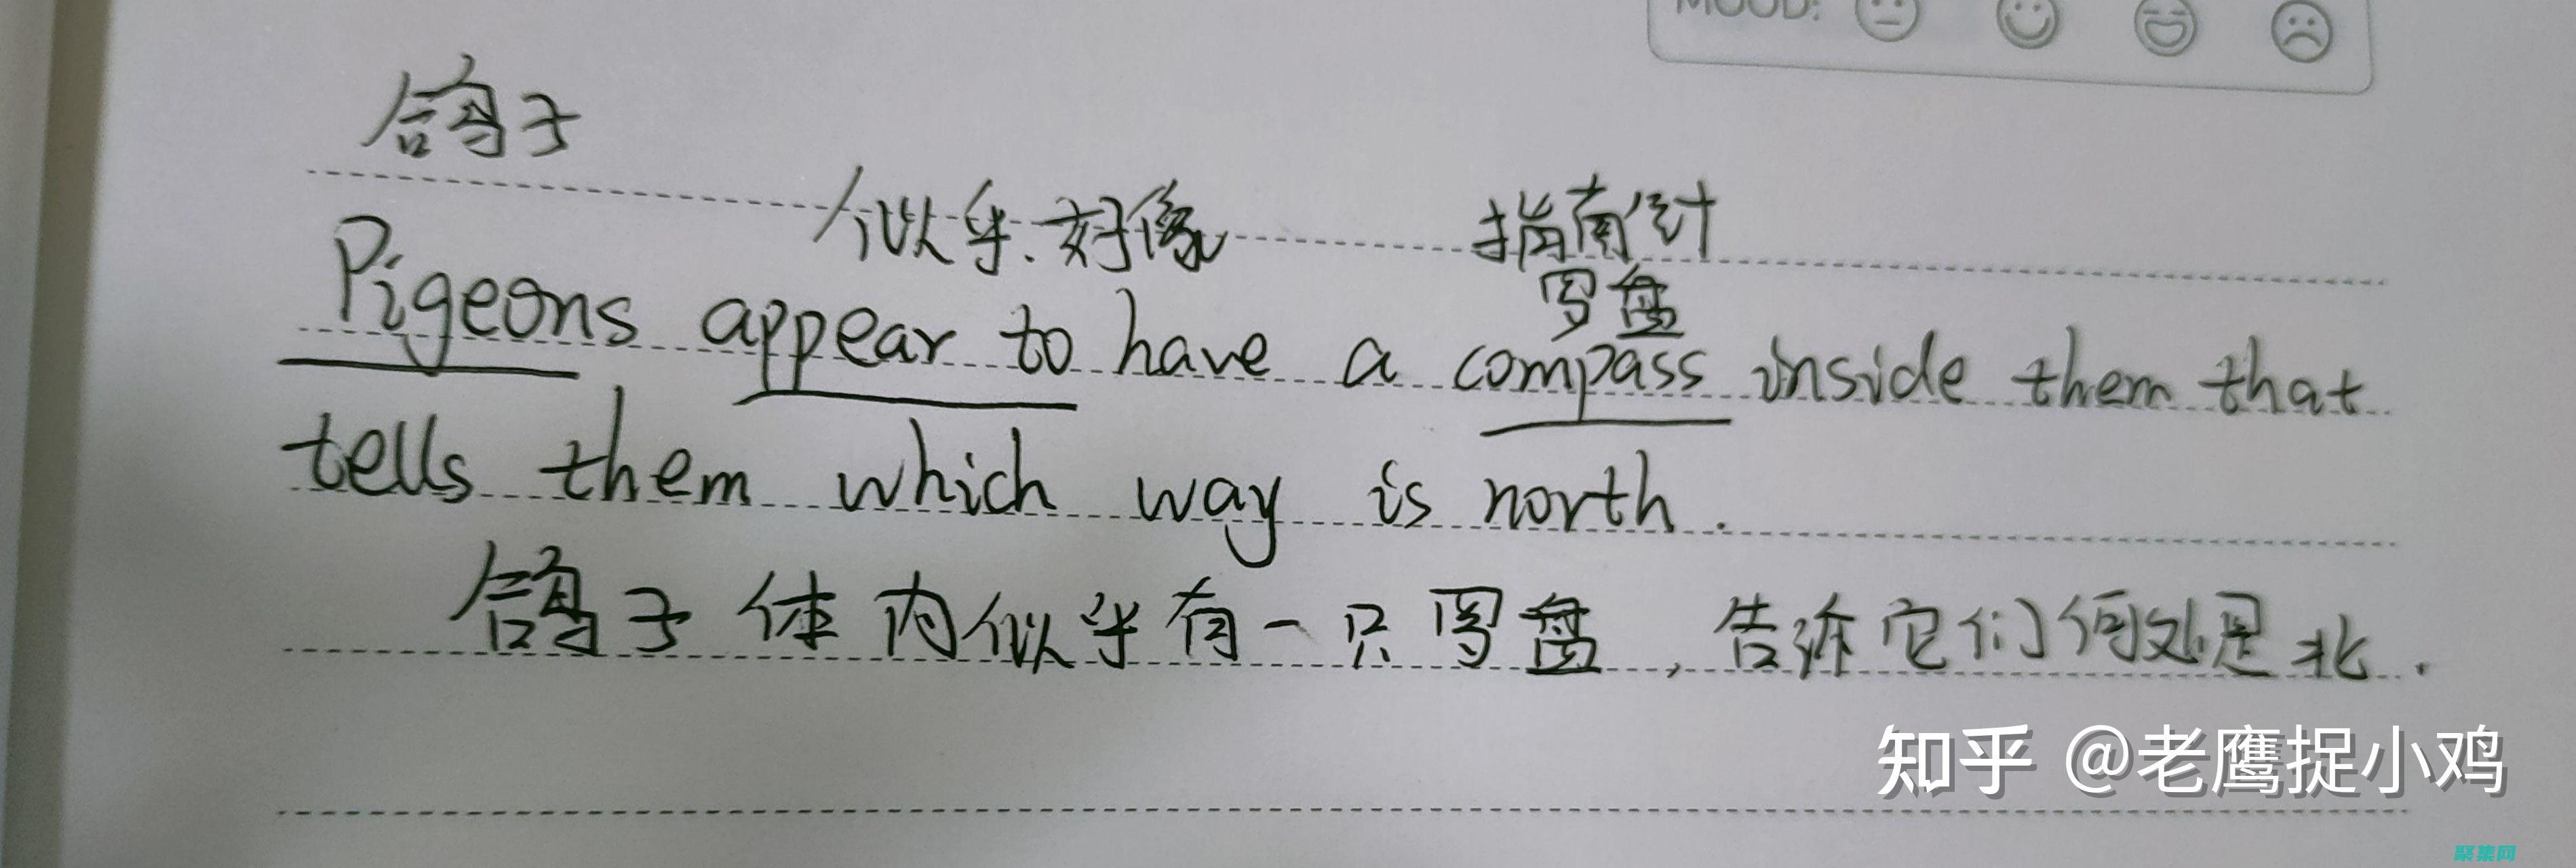 MOOD:
鸽子
似乎.好像 指南针
罗盘
Pigeons appear to have a compass inside them that
tells them which way is north.
鸽子体内似乎有一只罗盘,告诉它们何处是北.
知乎 @老鹰捉小鸡
聚集网